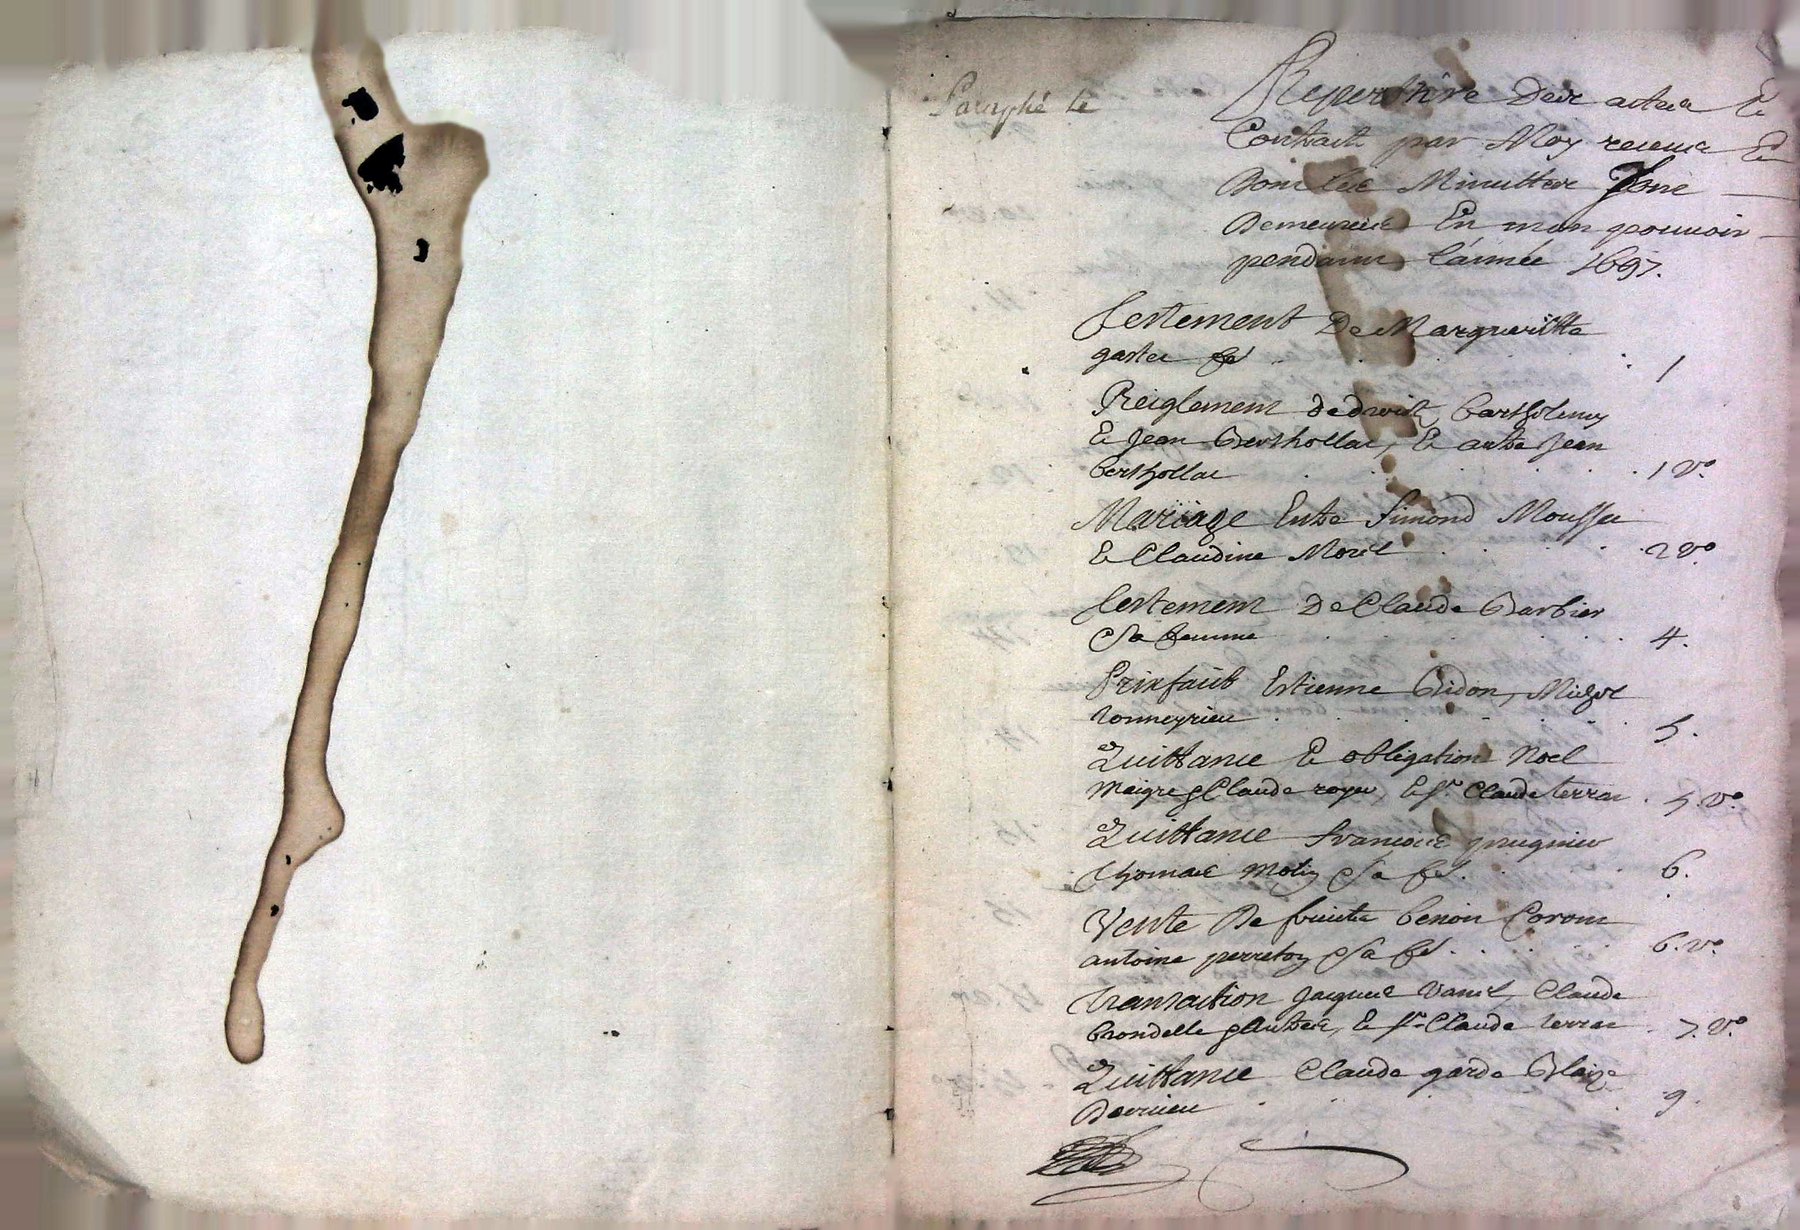 Paraphé le
Repertoire Des actes Et
Contrats par Moy receus Et
Dont les Minuttes sont
Demeurées En mon pouuoir
pendant l'année 1697.
Testement De Margueritte
1
Reiglement de droit Barthelemy
Et Jean Berthollat, Et autre Jean
Berthollat 1 Vo.
Mariage Entre Simond
Et Claudine Morel 2 Vo.
Testement De Claude Barbier
Sa femme 4.
Prixfait Estienne Bidon, Michel
5.
Quittance Et obligation Noel
Maigre Claude royer, Et Sr. Claude terras 5. Vo.
Quittance francois
Thomas Sa fe. 6.
Vente De fruits benoit
antoine Sa fe. 6. Vo.
Transaction Jacques Claude
Et Sr. Claude terras 7. Vo.
Quittance Claude garde Blaize
9.